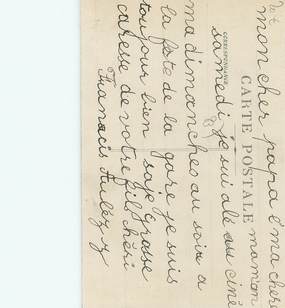 mon cher papa é ma chere
CARTE POSTALE
maman
CORRESPONDANCE
samedi je sui alé au ciné
ma dimanche au soir a
la fete de la gare je suis
toujour bien saje grosse
caresse de votre fil chéri